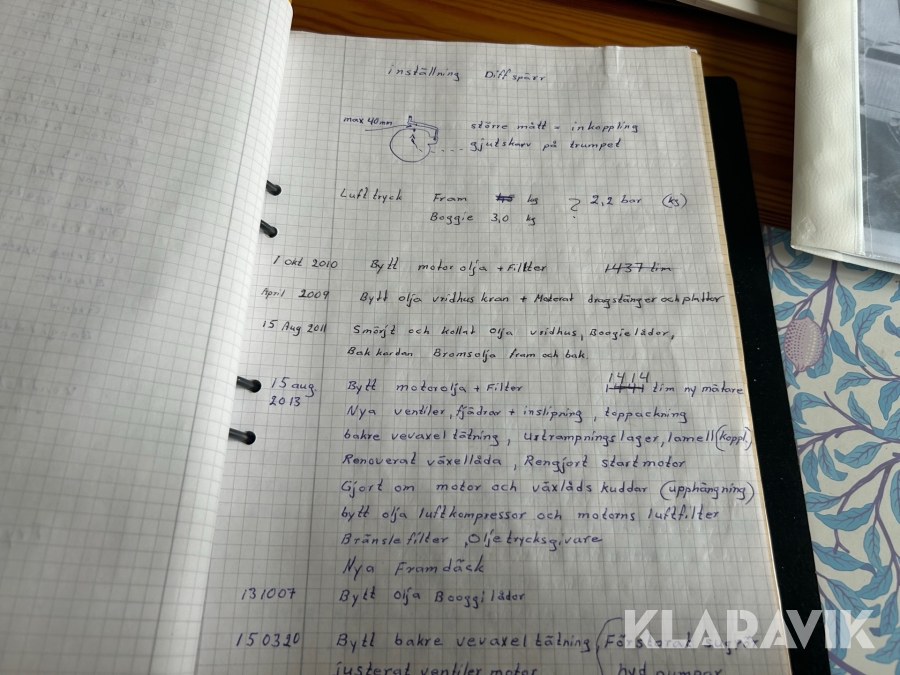 inställning Diffspärr
max 40mm
större mått = inkoppling
gjutskarv på trumpet
Lufttryck Fram kg ? 2,2 bar (kg)
Boggie 3,0 kg
1 okt 2010 Bytt motorolja + Filter 1437 tim
April 2009 Bytt olja vridhus kran + Monterat dragstänger och plattor
15 Aug 2011 Smörjt och kollat olja vridhus, Boogielådor,
Bak kardan Bromsolja fram och bak.
15 aug. 2013 Bytt motorolja + Filter 1414 tim ny mätare
Nya ventiler, fjädrar + inslipning, toppackning
bakre vevaxel tätning, urtrampningslager, lamell (koppl.)
Renoverat växellåda, Rengjort startmotor
Gjort om motor och växlåds kuddar (upphängning)
bytt olja luftkompressor och motorns luftfilter
Bränslefilter, Oljetrycksgivare
Nya Framdäck
131007 Bytt olja Booggi lådor
150320 Bytt bakre vevaxel tätning (Förstorat sugrör
justerat ventiler motor hyd pumpar
KLARAVIK